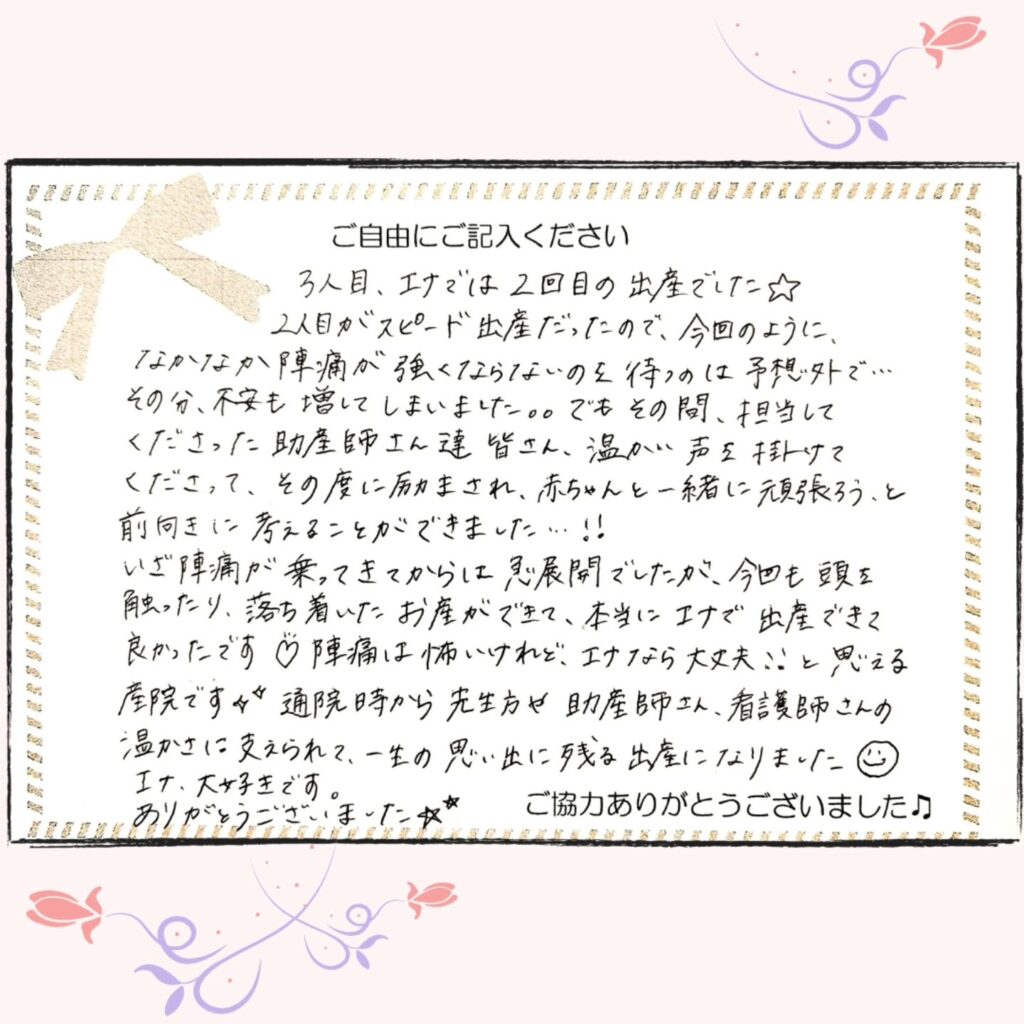 ご自由にご記入ください
3人目、エナでは2回目の出産でした☆
2人目がスピード出産だったので、今回のように、
なかなか陣痛が強くならないのを待つのは予想外で…
その分、不安も増してしまいました。。でもその間、担当して
くださった助産師さん達皆さん、温かい声を掛けて
くださって、その度に励まされ、赤ちゃんと一緒に頑張ろう、と
前向きに考えることができました…!!
いざ陣痛が乗ってきてからは急展開でしたが、今回も頭を
触ったり、落ち着いたお産ができて、本当にエナで出産できて
良かったです♡陣痛は怖いけれど、エナなら大丈夫!!と思える
産院です✨通院時から先生方や助産師さん、看護師さんの
温かさに支えられて、一生の思い出に残る出産になりました☺
エナ、大好きです。
ありがとうございました☆★
ご協力ありがとうございました♫